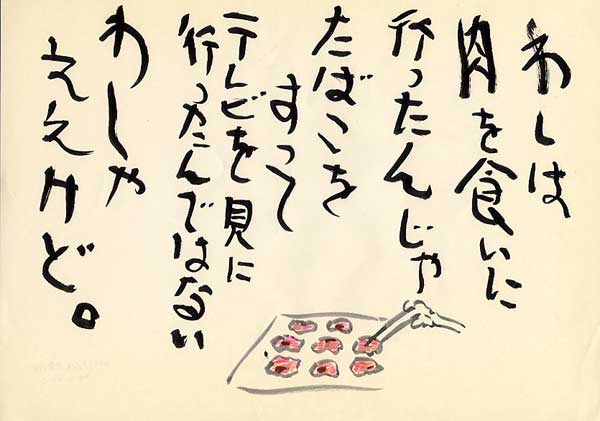 わしは
肉を食いに
行ったんじゃ
たばこを
すって
テレビを見に
行ったんではない
わしゃ
ええけど。